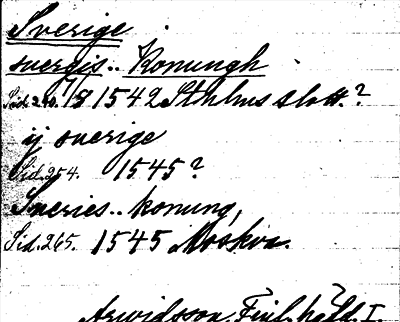 Sverige
svergis.. Konungh
Sid. 240. 17/8 1542 Sthlms slott.?
ij sverige
Sid. 254. 1545?
Sveries.. konung,
Sid. 265. 1545 Moskva.
Arwidsson, Finl. häfd. I.